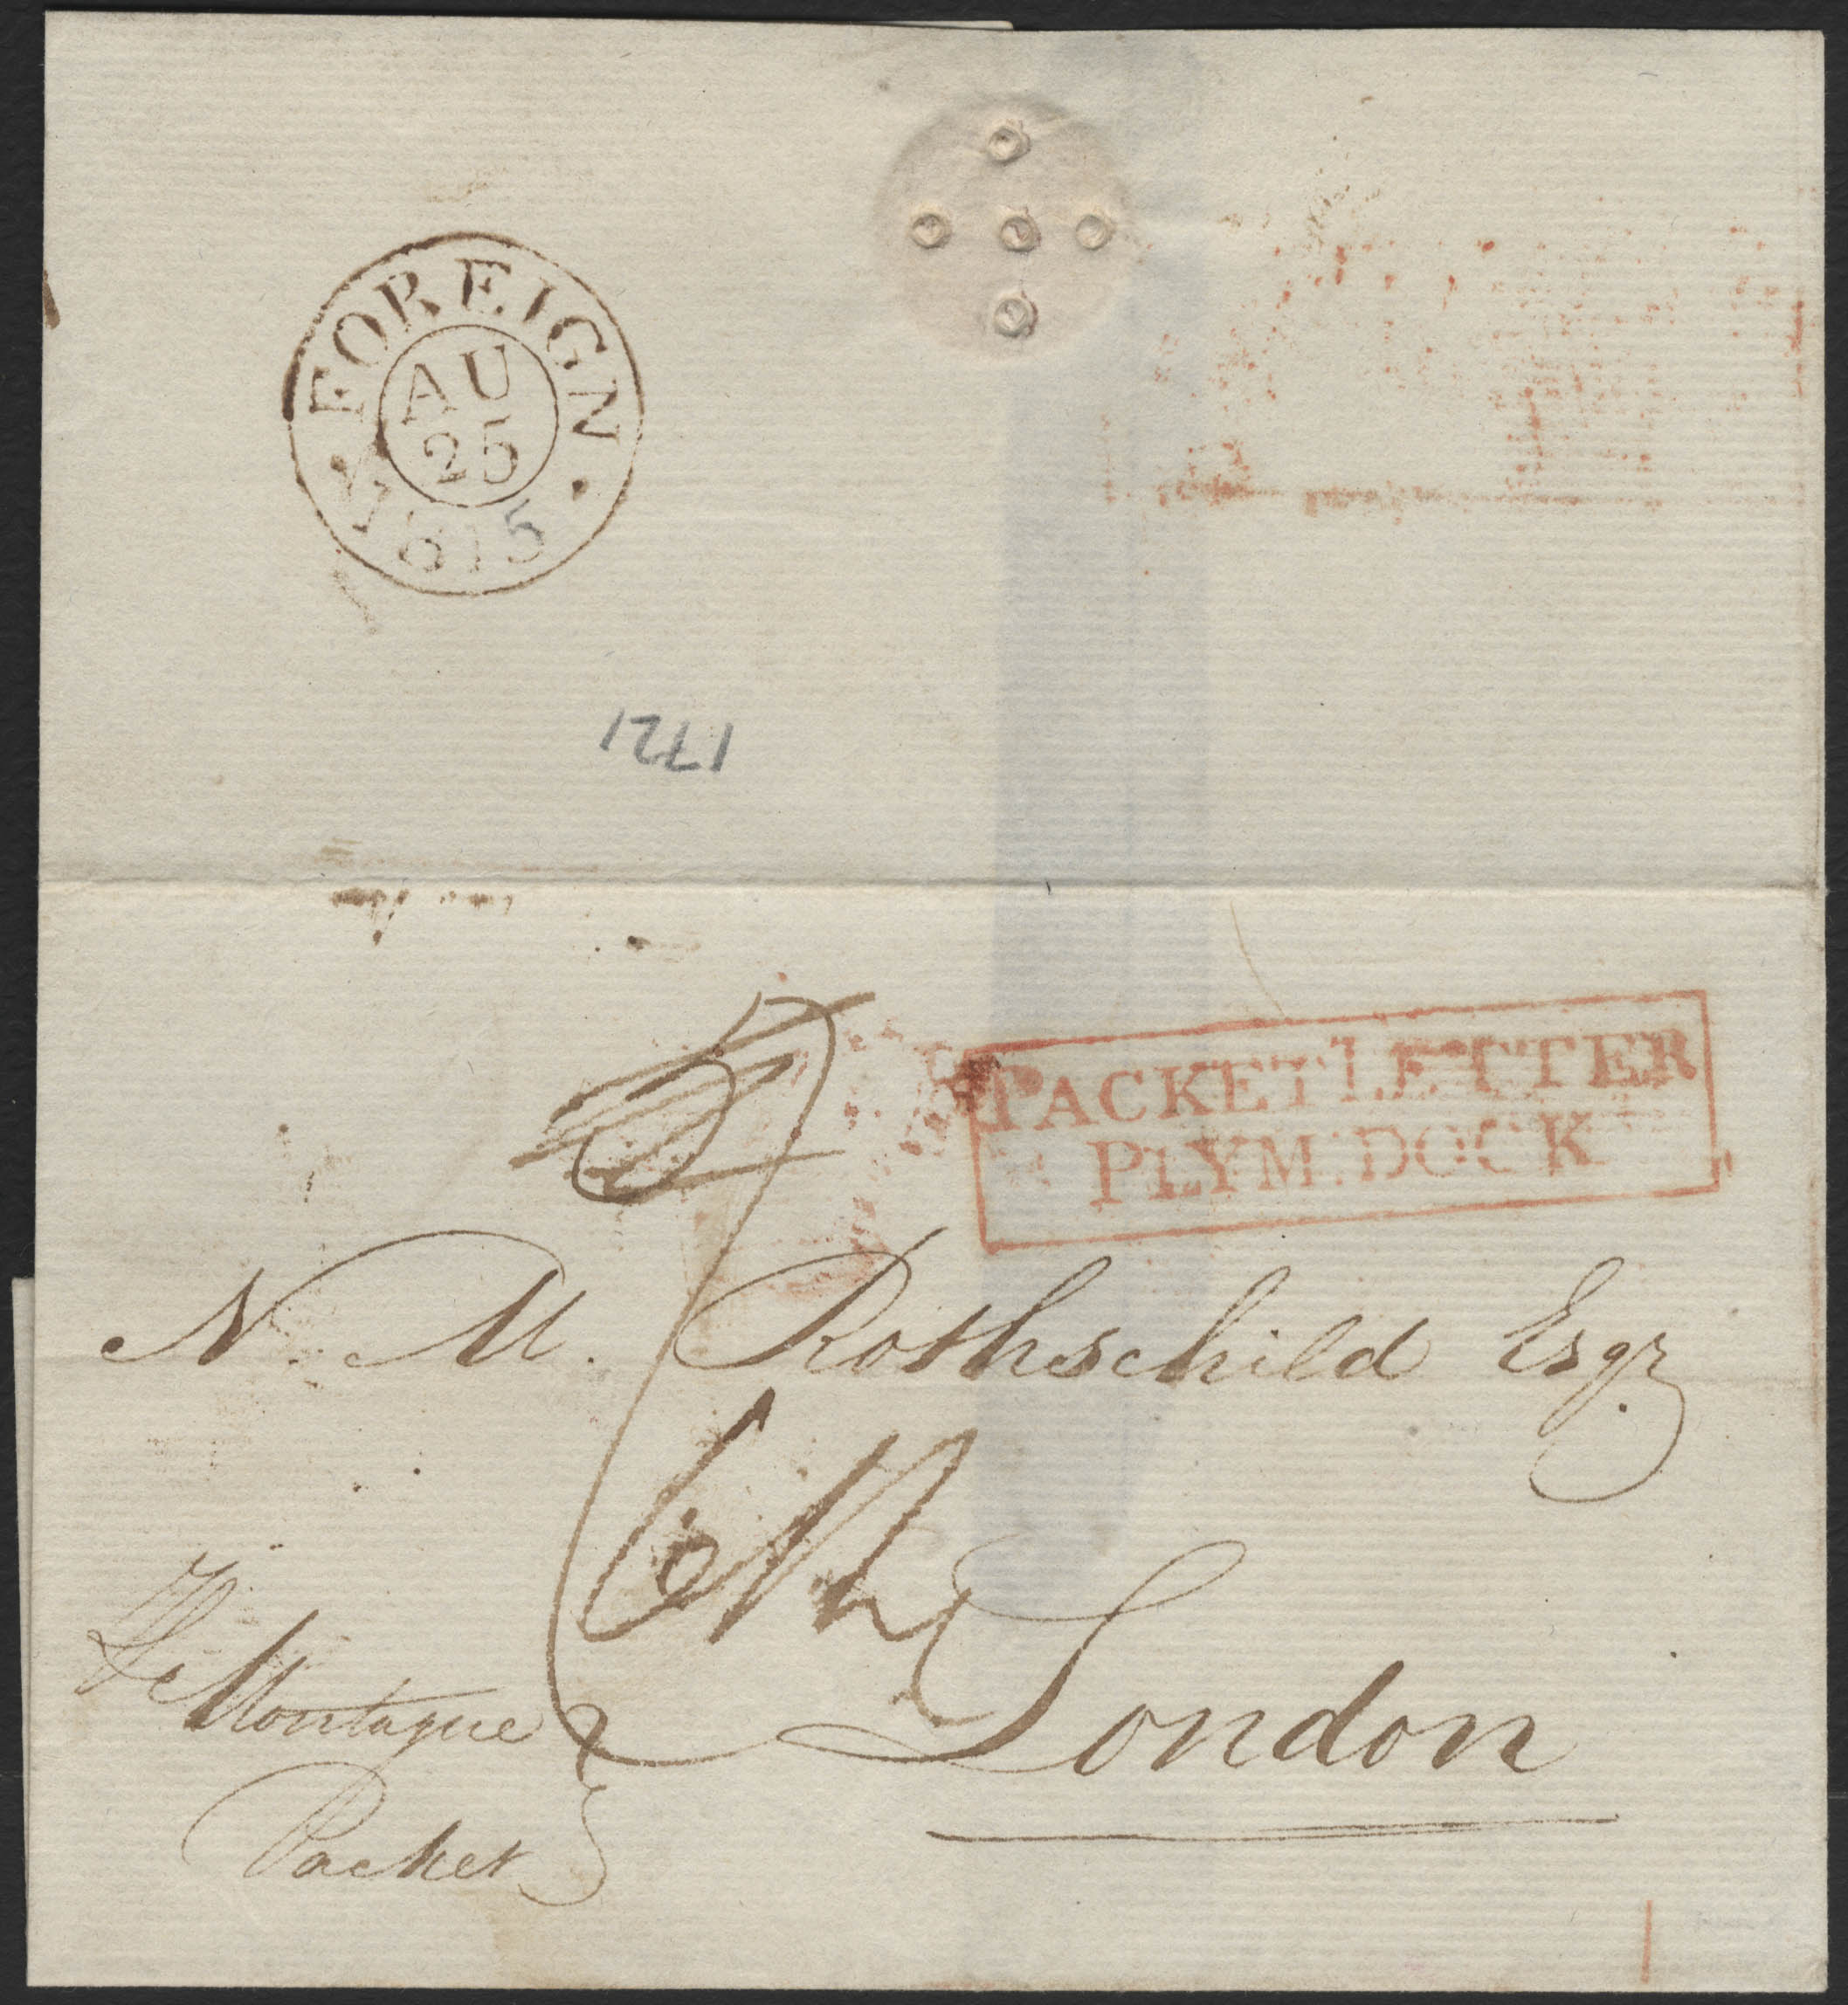 FOREIGN
AU
25
1815
1721
PACKET LETTER
PLYM. DOCK
N. M. Rothschild Esqr
London
Montague
Packet